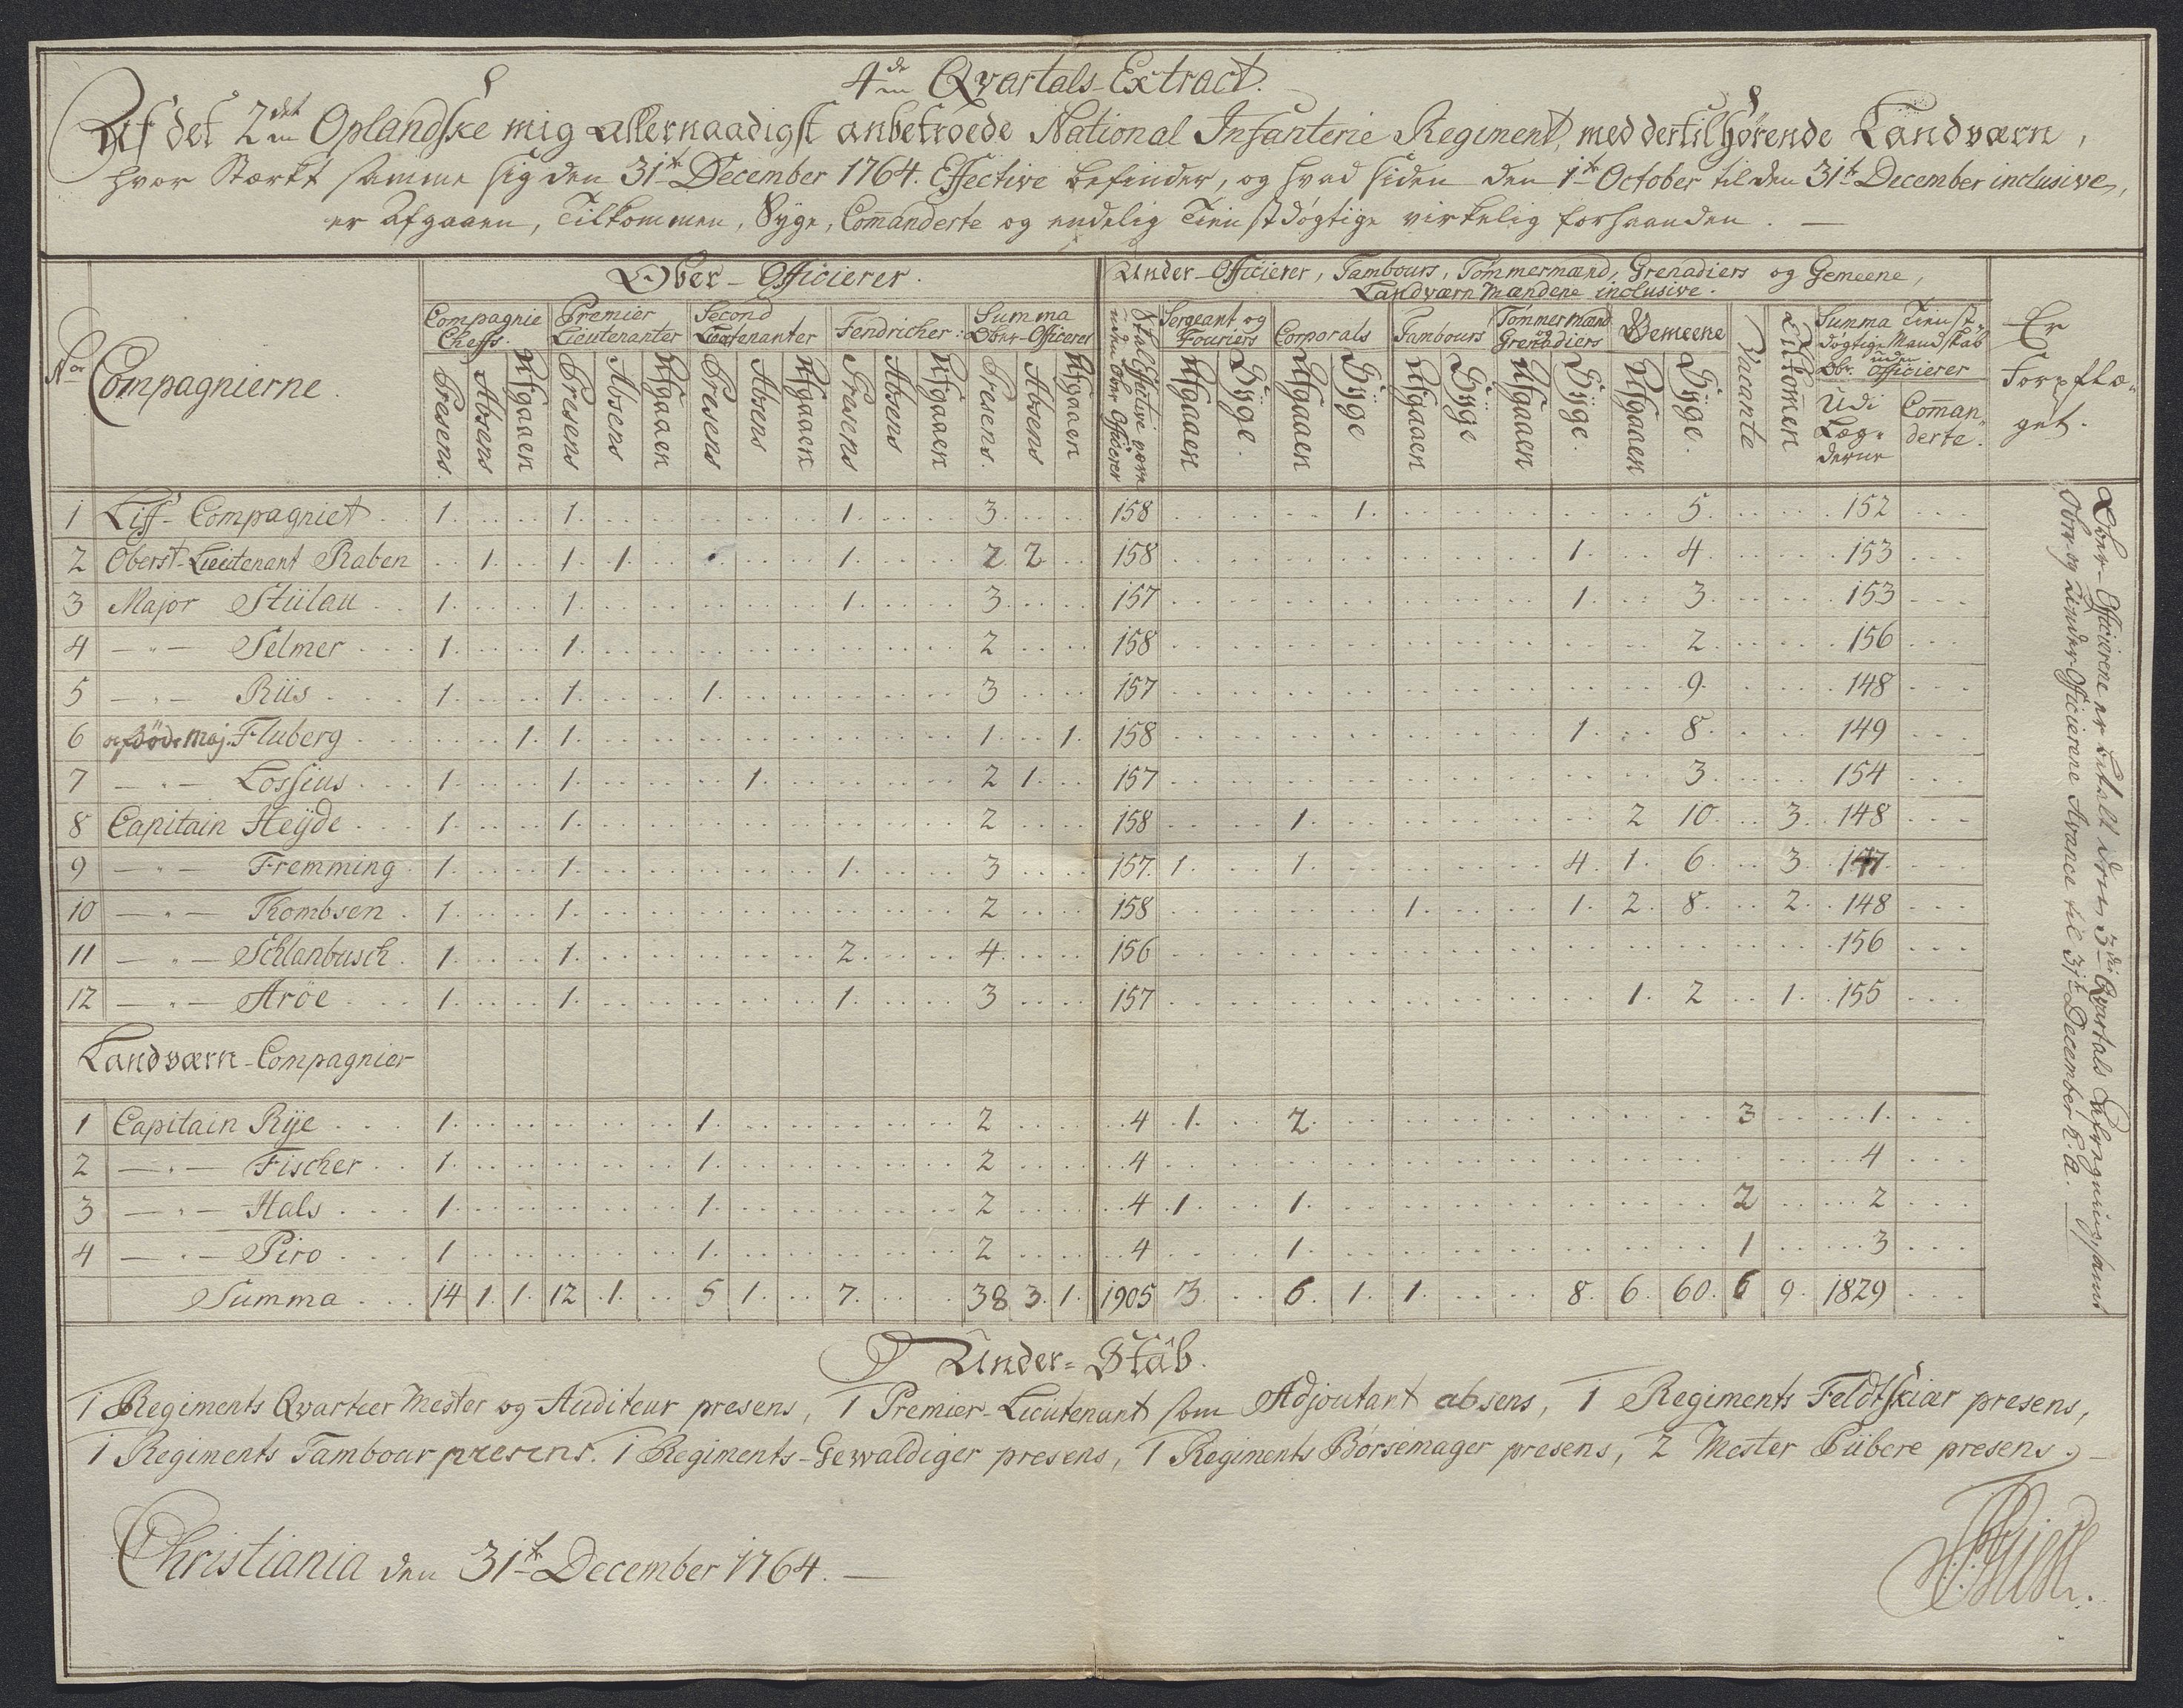 4de Qvartals-Extract.
Af det 2det Oplandske mig allernaadigst anbetroede National Infanterie Regiment, med dertil hørende Landværn,
hvor stærkt samme sig den 31te December 1764. Effective befinder, og hvad siden den 1te October til den 31te December inclusive,
er afgaaen, Tilkommen, Syge, Comanderte og endelig Tienstdøgtige virkelig forhaanden. —
Ober-Officierer. Under-Officierer, Tambours, Tømmermænd, Grenadiers og Gemeene,
Landværn Mændene inclusive.
Nor Compagnierne.
Compagnie Cheffs. Premier Lieutenanter Second Lieutenanter Fendricher: Summa Ober-Officerer
Presens. Absens Afgaaen Presens Absens Afgaaen Presens Absens Afgaaen Presens Absens Afgaaen Presens. Absens Afgaaen
Skal Effective være uden Ober Officierer
Sergeant og Fouriers Corporals Tambours Tømmermænd og Grenadiers Gemeene Vacante Tilkomen
Afgaaen Syge. Afgaaen Syge Afgaaen Syge Afgaaen Syge. Afgaaen Syge.
Summa Tienst-døgtige Mandskab uden Obr. Officierer
Udi Lægderne Comanderte.
Er Forpflæget.
1 Liff-Compagniet 1. 1. 1. 3. 158 1. 5. 152
2 Oberst-Lieutenant Raben 1. 1. 1. 1. 2 2 158 1. 4. 153
3 Major Stülau 1. 1. 1. 3. 157 1. 3. 153
4 — " — Selmer 1. 1. 2 158 2. 156
5 — " — Riis 1. 1. 1. 3. 157 9. 148
6 afdøde Maj. Fluberg 1. 1. 1. 1. 158 1. 8. 149
7 — " — Lossius 1. 1. 1. 2 1. 157 3. 154
8 Capitain Heÿde 1. 1. 2 158 1. 2 10. 3. 148
9 — " — Fremming 1. 1. 1. 3 157. 1. 1. 4 1. 6. 3. 147
10 — " — Thombsen 1. 1. 2 158 1. 1. 2. 8. 2. 148
11 — " — Schlanbusch 1. 1. 2. 4. 156 156
12 — " — Aröe 1. 1. 1. 3 157 1. 2 1. 155
Landværn-Compagnier
1 Capitain Rÿe 1. 1. 2 4 1. 2. 3 1.
2 — " — Fischer 1. 1. 2 4 4
3 — " — Hals 1. 1. 2 4 1. 1. 2 2
4 — " — Piro 1. 1. 2 4 1. 1 3
Summa 14 1. 1. 12 1. 5 1. 7. 38 3. 1. 1905 3. 6. 1. 1. 8. 6. 60. 6 9. 1829
Ober-Officierene er betalt deres 3die Qvartals samt
Obre- og Under Officierene Avance til 31te December h. a. —
Under-Stab.
1 Regiments Qvarteer Mester og Auditeur presens, 1 Premier-Lieutenant som Adjoutant absens, 1 Regiments Feldtskiær presens,
1 Regiments Tambour presens. 1 Regiments-Gewaldiger presens, 1 Regiments Børsemager presens, 2 Mester Piibere presens, —
Christiania den 31te December 1764. —